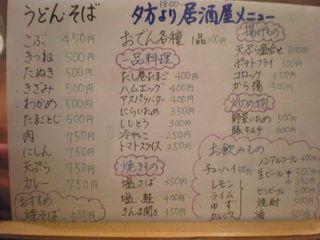 うどん・そば
こぶ 450円
きつね 500円
たぬき 500円
きざみ 500円
わかめ 500円
たまごとじ 500円
肉 750円
にしん 750円
天ぷら 750円
カレー 750円
おすすめ
焼そば 650円
18:00〜
夕方より居酒屋メニュー
おでん各種 1品 100円
一品料理
だし巻たまご 400円
ハムエッグ 400円
アスパラバター 400円
にらいため 350円
ししとう 300円
冷やっこ 250円
トマトスライス 250円
焼きもの
塩さば 350円
塩鮭 400円
さんま開き 450円
揚げもの
天ぷら盛合せ 800円
ポテトフライ 300円
コロッケ 350円
から揚 500円
炒め物
野菜いため 500円
豚キムチ 600円
お飲みもの
チューハイ 350円
レモン
ライム
ゆず
カルピス
ノンアルコール 400円
生ビール 中
小
ビンビール 550円
焼酎 500円
酒